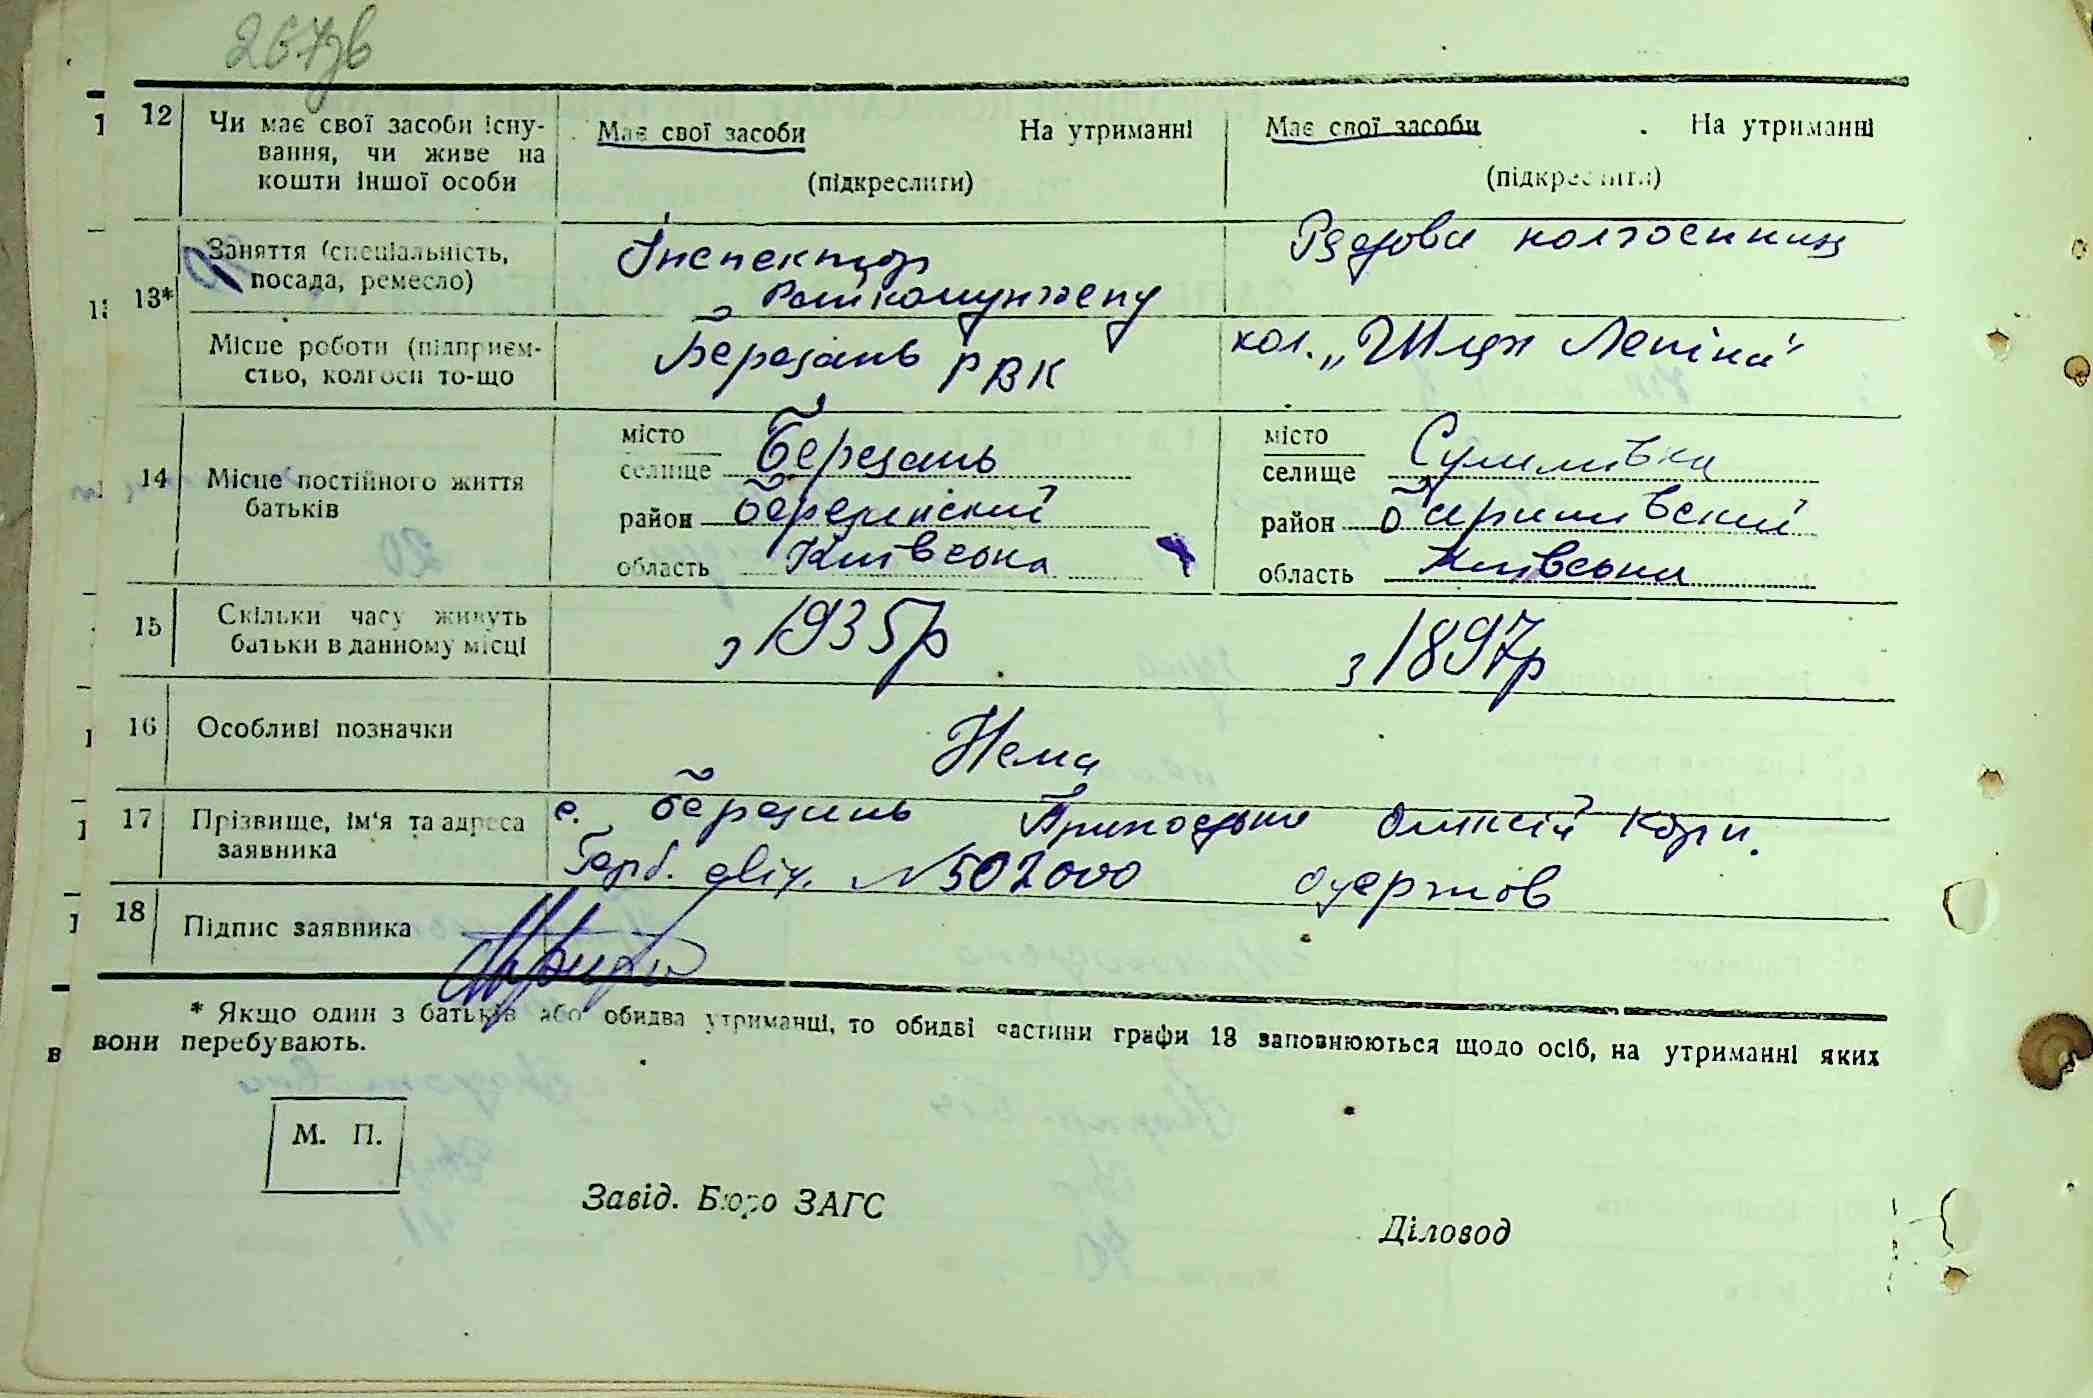 267зв
12 Чи має свої засоби існу-
вання, чи живе на
кошти іншої особи
Має свої засоби На утриманні
(підкреслити)
Має свої засоби На утриманні
(підкреслити)
13*
Заняття (спеціальність,
посада, ремесло)
Інспектор
Райкомунгоспу
Рядова колгоспниця
Місце роботи (підприєм-
ство, колгосп то-що
Березань РВК
кол. „Шлях Леніна"
14 Місце постійного життя
батьків
місто
селище Березань
район Березанський
область Київська
місто
селище Сулимівка
район Баришівський
область Київська
15 Скільки часу живуть
батьки в данному місці
з 1935р
з 1897р
16 Особливі позначки
Нема
17 Прізвище, ім'я та адреса
заявника
с. Березань Приходько Олексій Корн.
Герб. свід. №502000 одержов
18 Підпис заявника
* Якщо один з батьків або обидва утриманці, то обидві частини графи 13 заповнюються щодо осіб, на утриманні яких
вони перебувають.
М. П.
Завід. Бюро ЗАГС
Діловод